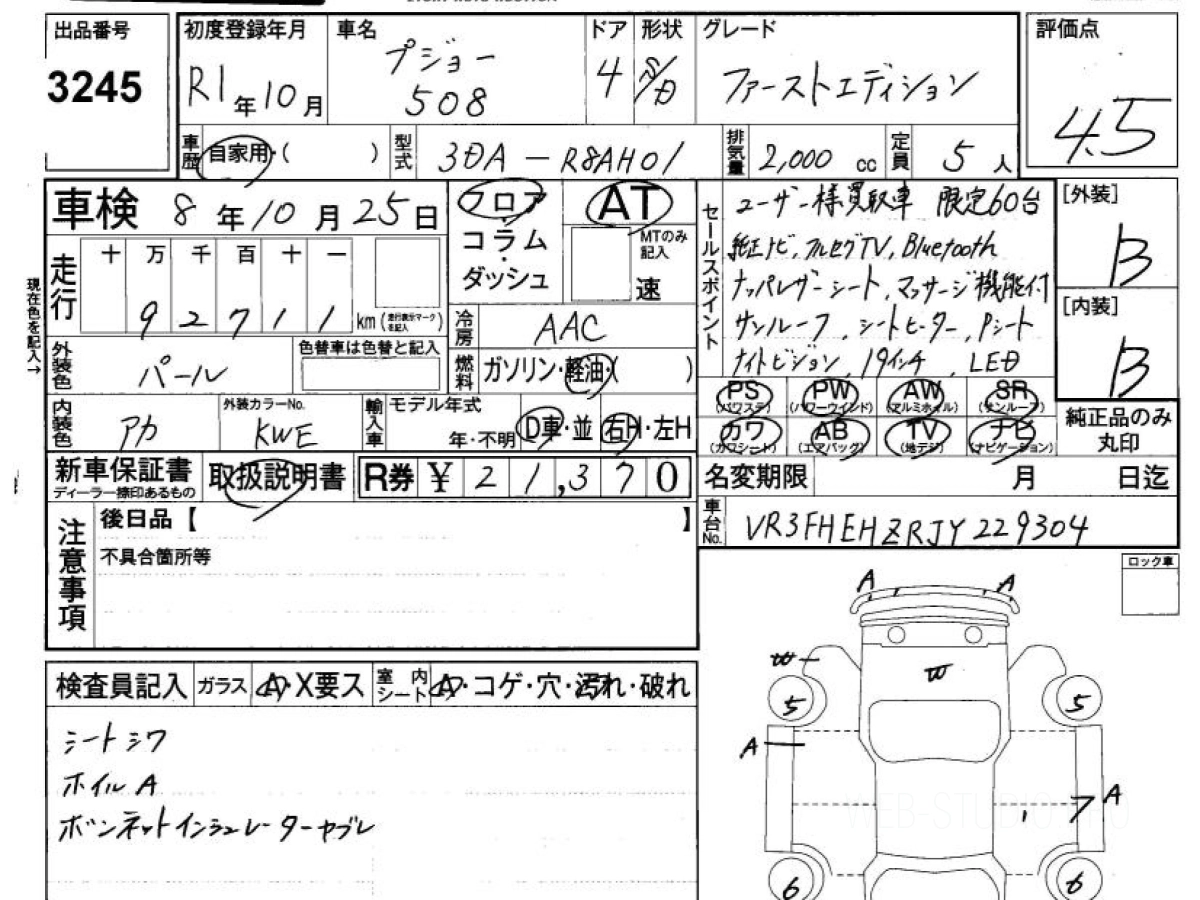 出品番号
3245
初度登録年月
R1年10月
車名
プジョー
508
ドア
4
形状
S/D
グレード
ファーストエディション
評価点
4.5
車歴
自家用・( )
型式
3DA-R8AH01
排気量
2,000 cc
定員
5人
車検 8年10月25日
走行
十 万 千 百 十 一
9 2 7 1 1 km(走行表示マークを記入)
現在色を記入→
外装色
パール
色替車は色替と記入
内装色
アカ
外装カラーNo.
KWE
フロア
・
コラム
・
ダッシュ
AT
MTのみ記入
速
冷房
AAC
燃料
ガソリン・軽油・( )
輸入車
モデル年式
年・不明
D車・並
右H・左H
セールスポイント
ユーザー様買取車 限定60台
純正ナビ,フルセグTV,Bluetooth
ナッパレザーシート,マッサージ機能付
サンルーフ,シートヒーター,Pシート
ナイトビジョン,19インチ,LED
[外装]
B
[内装]
B
PS (パワステ)
PW (パワーウインド)
AW (アルミホイル)
SR (サンルーフ)
カワ (カワシート)
AB (エアバッグ)
TV (地デジ)
ナビ (ナビゲーション)
純正品のみ
丸印
新車保証書
ディーラー捺印あるもの
取扱説明書
R券 ¥ 21,370
名変期限 月 日迄
車台No.
VR3FHEHZRJY229304
注意事項
後日品【 】
不具合箇所等
ロック車
検査員記入
ガラス
A・X要ス
室内シート
A・コゲ・穴・汚れ・破れ
シートシワ
ホイルA
ボンネットインシュレーターヤブレ
A A
W W
5 5
A
7 A
6 6
WEB-STUDIO.PRO